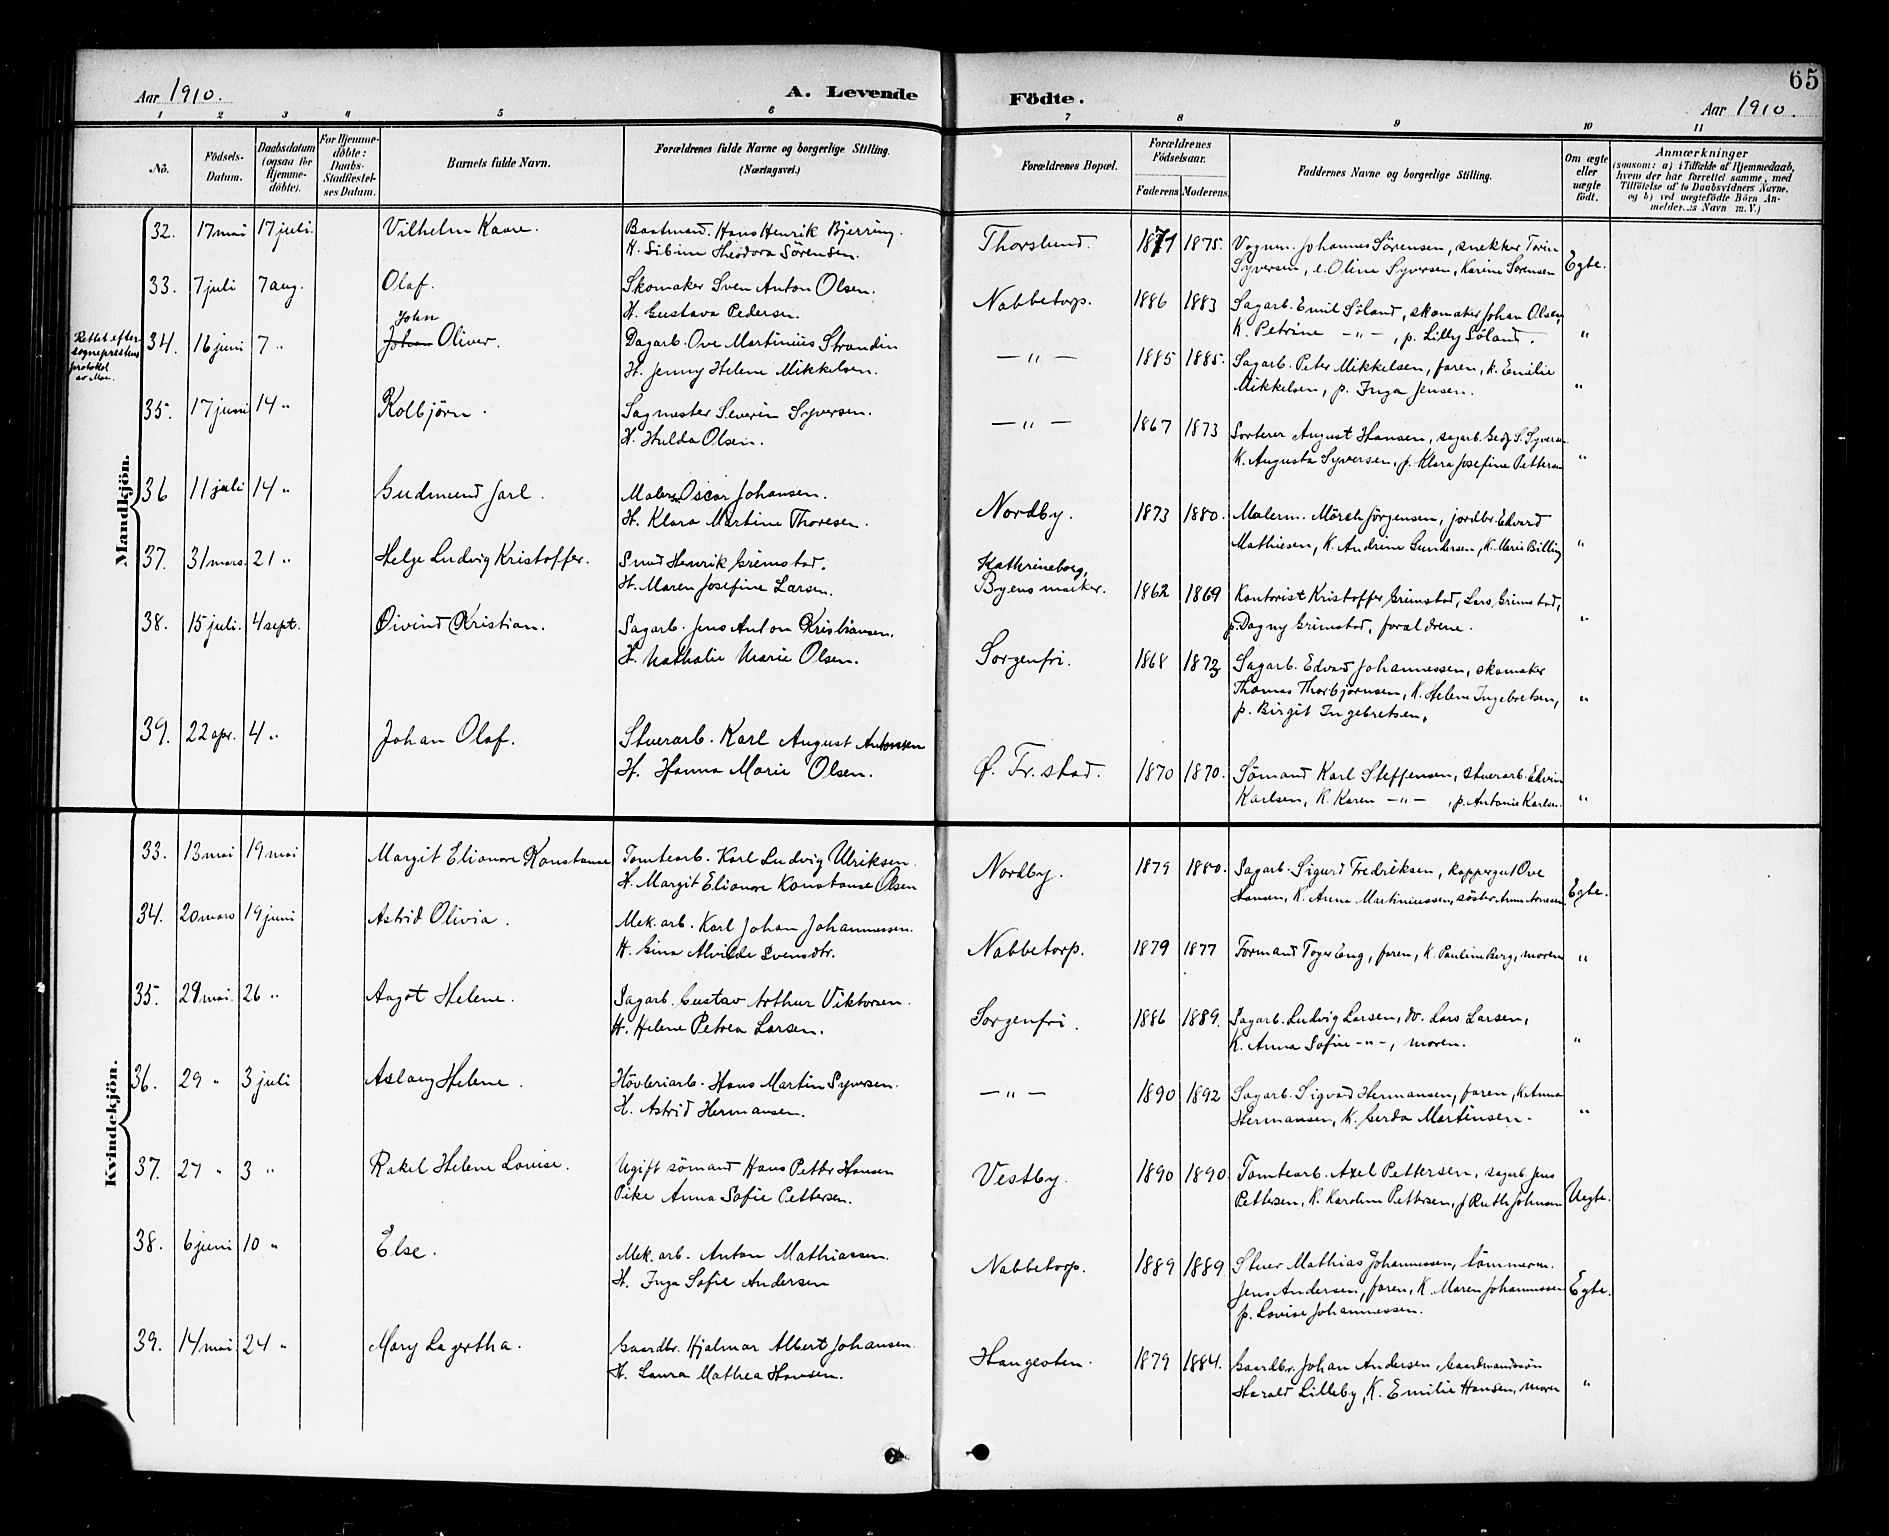 65
Aar 1910.
A. Levende
Födte.
Aar 1910.
1 2 3 4 5 6 7 8 9 10 11
No.
Födsels-Datum.
Daabsdatum (ogsaa for Hjemme-döbte).
For Hjemme-döbte: Daabs-Stadfæstel-ses Datum.
Barnets fulde Navn.
Forældrenes fulde Navne og borgerlige Stilling. (Næringsvei.)
Forældrenes Bopæl.
Forældrenes Födselsaar.
Faderens Moderens
Faddernes Navne og borgerlige Stilling.
Om ægte eller uægte födt.
Anmærkninger
(saasom: a) i Tilfælde af Hjemmedaab, hvem der har forrettet samme, med Tilföielse af to Daabsvidners Navne. og b) ved uægtefödte Börn An-melderens Navn m. V.)
Mandkjön.
32. 17 mai 17 juli. Vilhelm Kaare. Baatmand. Hans Henrik Bjerring. Thorslund. 1871 1875. Vognm. Johannes Sørensen, snekker Torin
H. Sibine Theodora Sörensen. Syversen, e. Oline Syversen, Karine Sørensen Egte.
33. 7 juli 7 aug. Olaf. Skomaker Sven Anton Olsen. Nabbetorp. 1886 1883 Sagarb. Emil Söland, skomaker Johan Olsen,
H. Gustava Pedersen. K. Petrine -"-, p. Lilly Söland. "
Rettet efter sogneprestens protokol av Moe.
John
34. 16 juni 7 " Johan Oliver. Dagarb. Ove Martinius Strandin -"- 1885 1885. Sagarb. Peter Mikkelsen, faren, k. Emilie
H. Jenny Helene Mikkelsen. Mikkelsen, p. Inga Jensen. "
35. 17 juni 14 " Kolbjörn. Sagmester Severin Syversen. -"- 1867 1873 Sorterer August Hansen, sagarb. S. Syversen
H. Hulda Olsen. K. Augusta Syversen, p. Klara Josefine Petterson "
36 11 juli 14 " Gudmund Jarl. Maler Oscar Johansen. Nordby. 1873 1880. Malerm. Jörgensen, jordbr. Edvard
H. Klara Martine Thoresen. Mathiesen, K. Andrine Gundersen, K. Marie Billing "
37. 31 mars. 21 " Helge Ludvig Kristoffer. Smed Henrik Grimstad. Kathrineborg, Byens marker. 1862 1869 Kontorist Kristoffer Grimstad, Lars Grimstad,
H. Maren Josefine Larsen. p. Dagny Grimstad, foraldrene. "
38. 15 juli. 4 sept. Öivind Kristian. Sagarb. Jens Anton Kristiansen. Sorgenfri. 1868 1873 Sagarb. Edvard Johannessen, skomaker
H. Nathalie Marie Olsen. Thomas Thorbjörnsen, K. Helene Ingebretsen,
p. Birgit Ingebretsen. "
39. 22 apr. 4 " Johan Olaf. Stuerarb. Karl August Antonsen Ø. Fr.stad. 1870 1870. Sömand Karl Steffensen, stuerarb. Edvin
H. Hanna Marie Olsen. Karlsen, K. Karen -"-, p. Antonie Karlsen. "
Kvindekjön.
33. 13 mai 19 mai Margit Elionore Konstanse Tomtearb. Karl Ludvig Ulriksen. Nordby. 1879 1880. Sagarb. Sigurd Fredriksen, Ove
H. Margit Elionore Konstanse Olsen Hansen, K. Anna Martiniussen, söster Anna Egte.
34. 20 mars 19 juni Astrid Olivia. Mek. arb. Karl Johan Johannessen. Nabbetorp. 1879 1877 Formand Toger Eng, faren, K. Pauline Berg, moren "
H. Gina Alvilde Svensdtr.
35. 29 mai. 26 " Aagot Helene. Sagarb. Gustav Arthur Viktorsen. Sorgenfri. 1886 1889. Sagarb. Ludvig Larsen, do. Lars Larsen,
H. Helene Petrea Larsen. K. Anna Sofie -"-, moren. "
36. 29 " 3 juli Aslaug Helene. Hövleriarb. Hans Martin Syversen. -"- 1890 1892 Sagarb. Sigvard Hermansen, faren, K. Anna
H. Astrid Hermansen. Hermansen, K. Gerda Martinsen. "
37. 27 " 3 " Rakel Helene Lovise. Ugift sömand Hans Petter Hansen Vestby. 1890 1890. Tomtearb. Axel Pettersen, sagarb. Jens
Pike Anna Sofie Pettersen. Pettersen, K. Karoline Pettersen, p. Ruth Johansen Uegte.
38. 6 juni 10 " Else. Mek. arb. Anton Mathiassen. Nabbetorp. 1889 1889 Stuer Mathias Johannessen, tömmerm.
H. Inga Sofie Andersen Jens Andersen, faren, K. Maren Johannessen Egte.
p. Lovise Johannessen.
39. 14 mai 24 " Mary Lagertha. Gaardbr. Hjalmar Albert Johansen. Haugesten. 1879 1884. Gaardbr. Johan Andersen, Gaardmandssön
H. Laura Mathea Hansen. Harald Lilleby, K. Emilie Hansen, moren "